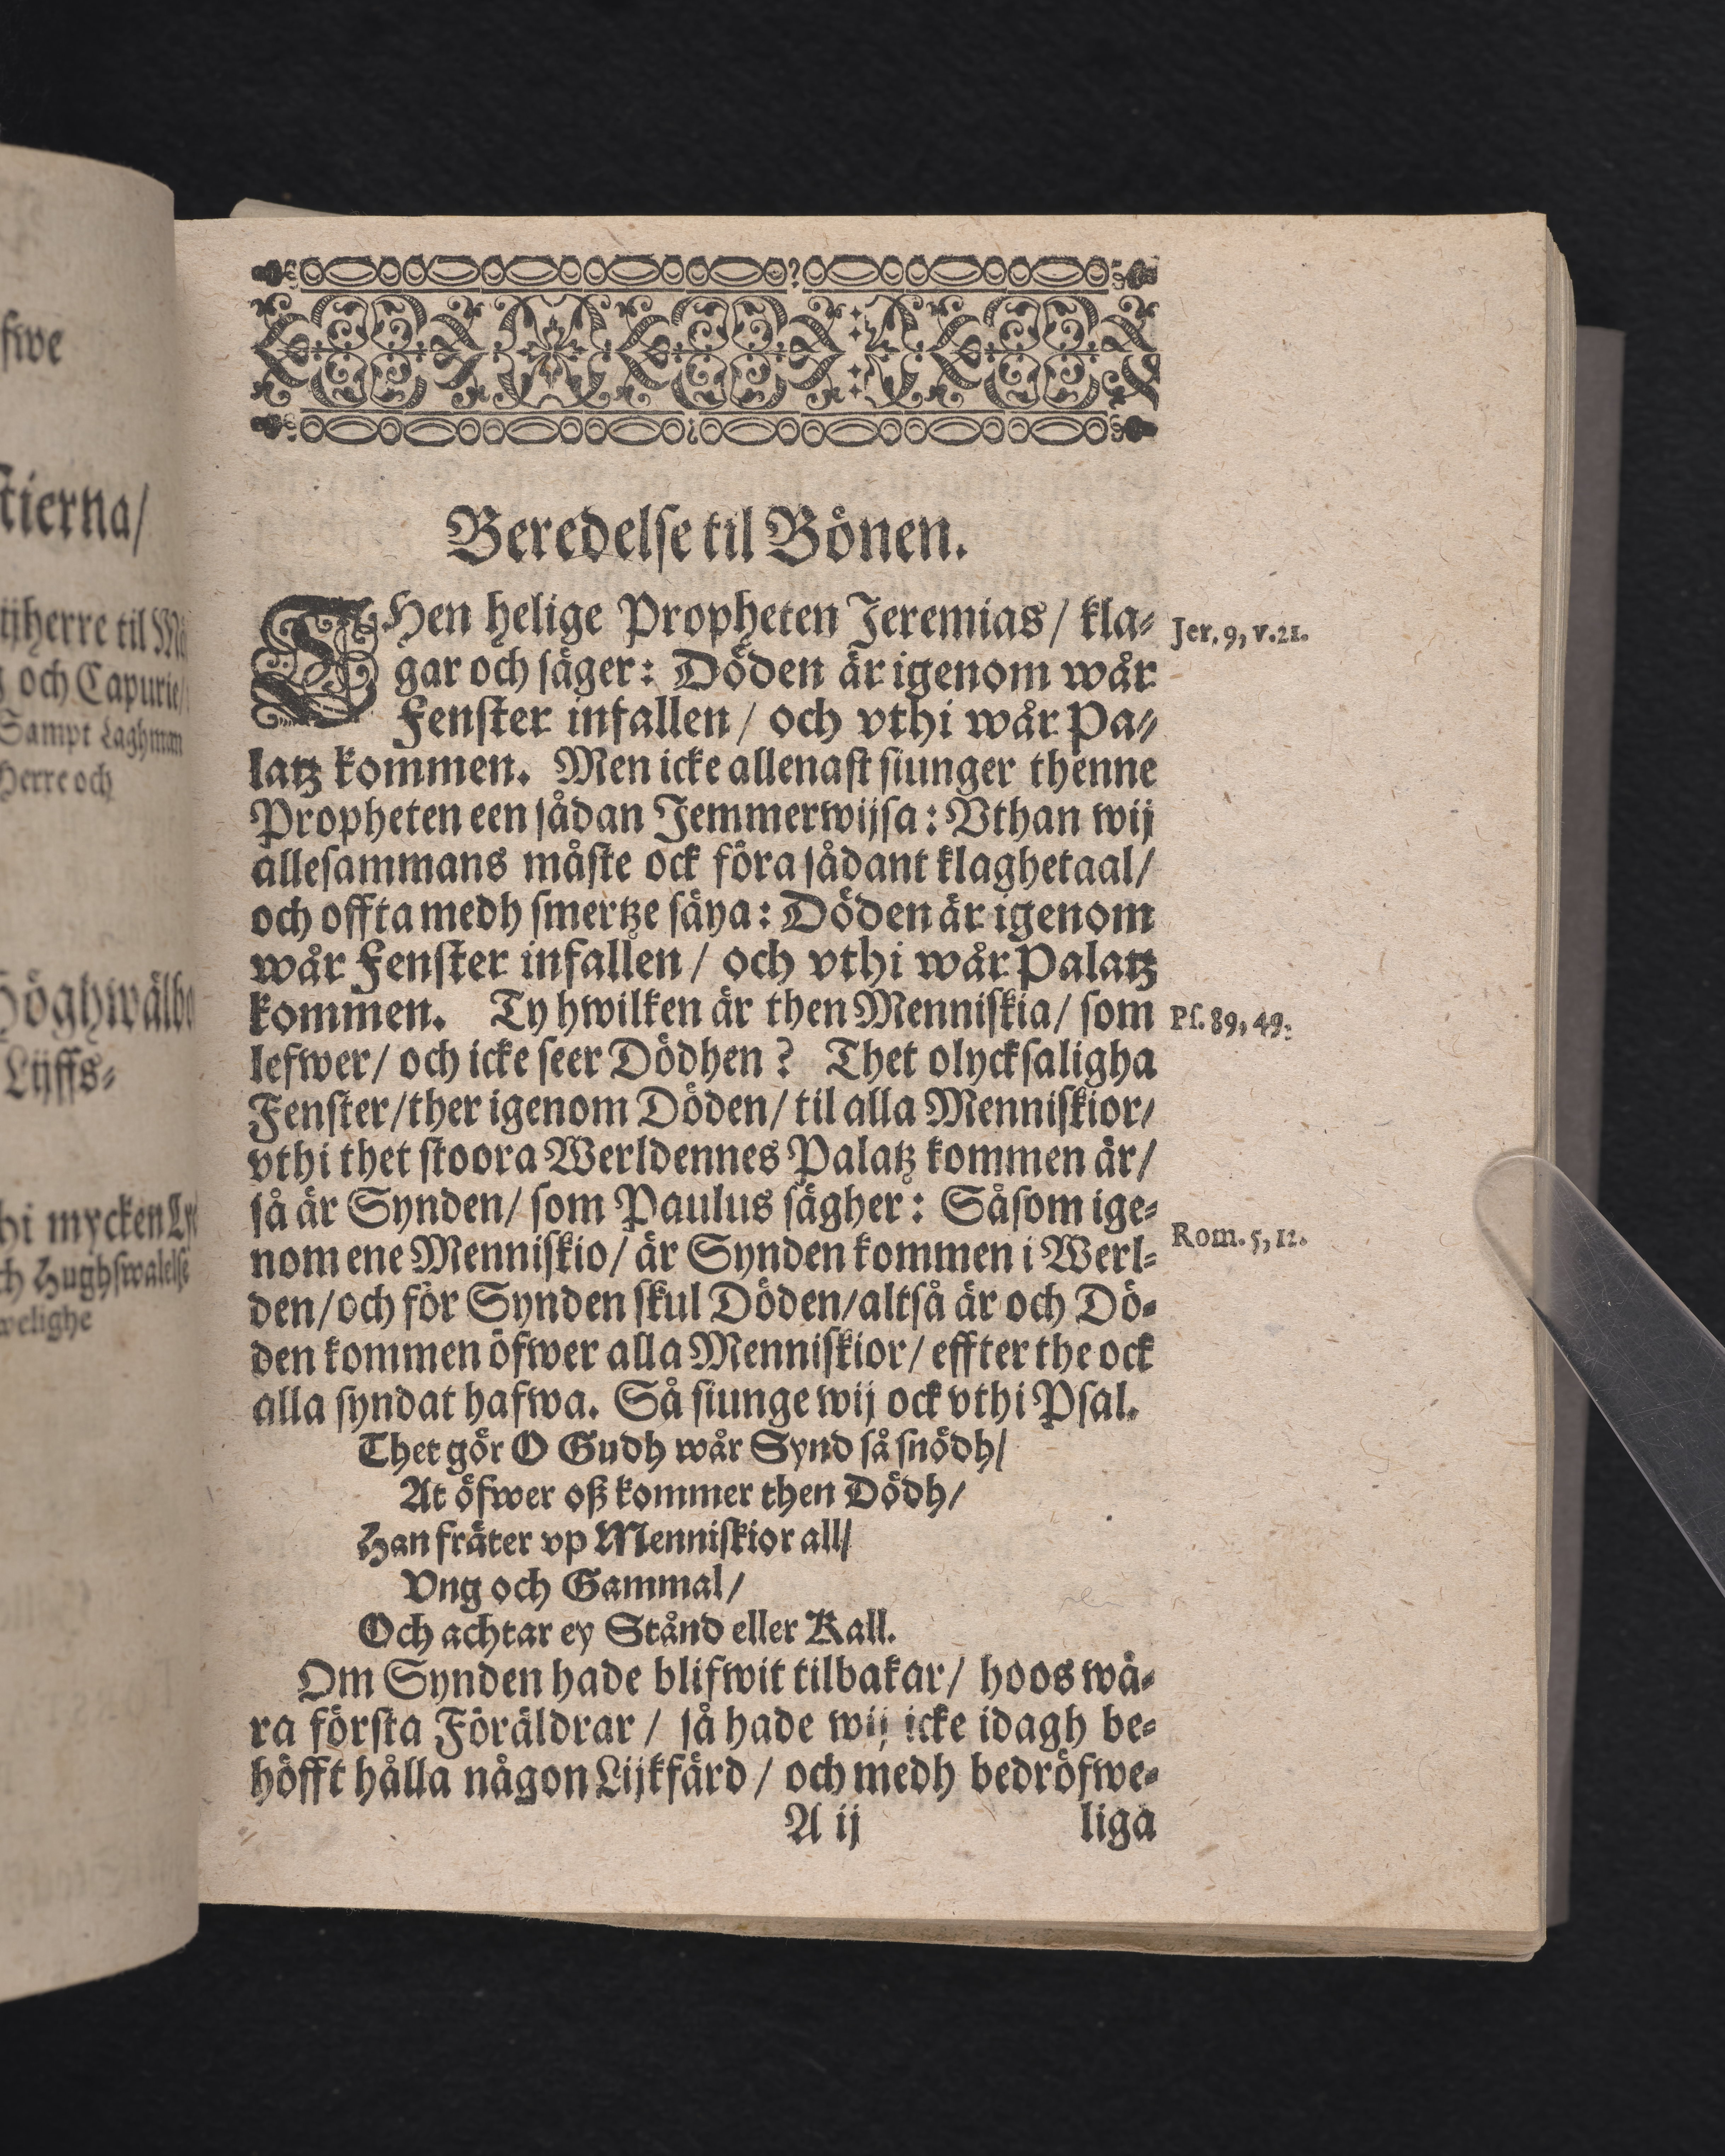 fwe
stierna/
och Capurie/
Sampt Laghman
Herre och
Lijffs-
hi mycken
Hughswalelse
welighe
Beredelse til Bönen.
THen helige Propheten Jeremias/ kla- Jer. 9, v.21.
gar och säger: Döden är igenom wår
Fenster infallen/ och vthi wår Pa-
latz kommen. Men icke allenast siunger thenne
Propheten een sådan Jemmerwijsa: Vthan wij
allesammans måste ock föra sådant klaghetaal/
och offta medh smertze säya: Döden är igenom
wår Fenster infallen/ och vthi wår Palatz
kommen. Ty hwilken är then Menniskia/ som Ps. 89, 49.
lefwer/ och icke seer Dödhen? Thet olycksaligha
Fenster/ther igenom Döden/ til alla Menniskior/
vthi thet stoora Werldennes Palatz kommen är/
så är Synden/ som Paulus sägher: Såsom ige-
nom ene Menniskio/ är Synden kommen i Werl- Rom. 5, 12.
den/och för Synden skul Döden/altså är och Dö-
den kommen öfwer alla Menniskior/ effter the ock
alla syndat hafwa. Så siunge wij ock vthi Psal.
Thet gör O Gudh wår Synd så snödh/
At öfwer oß kommer then Dödh/
Han fräter vp Menniskior all/
Vng och Gammal/
Och achtar ey Stånd eller Kall.
Om Synden hade blifwit tilbakar/ hoos wå-
ra första Föräldrar/ så hade wij icke idagh be-
höfft hålla någon Lijkfärd/ och medh bedröfwe-
A ij liga